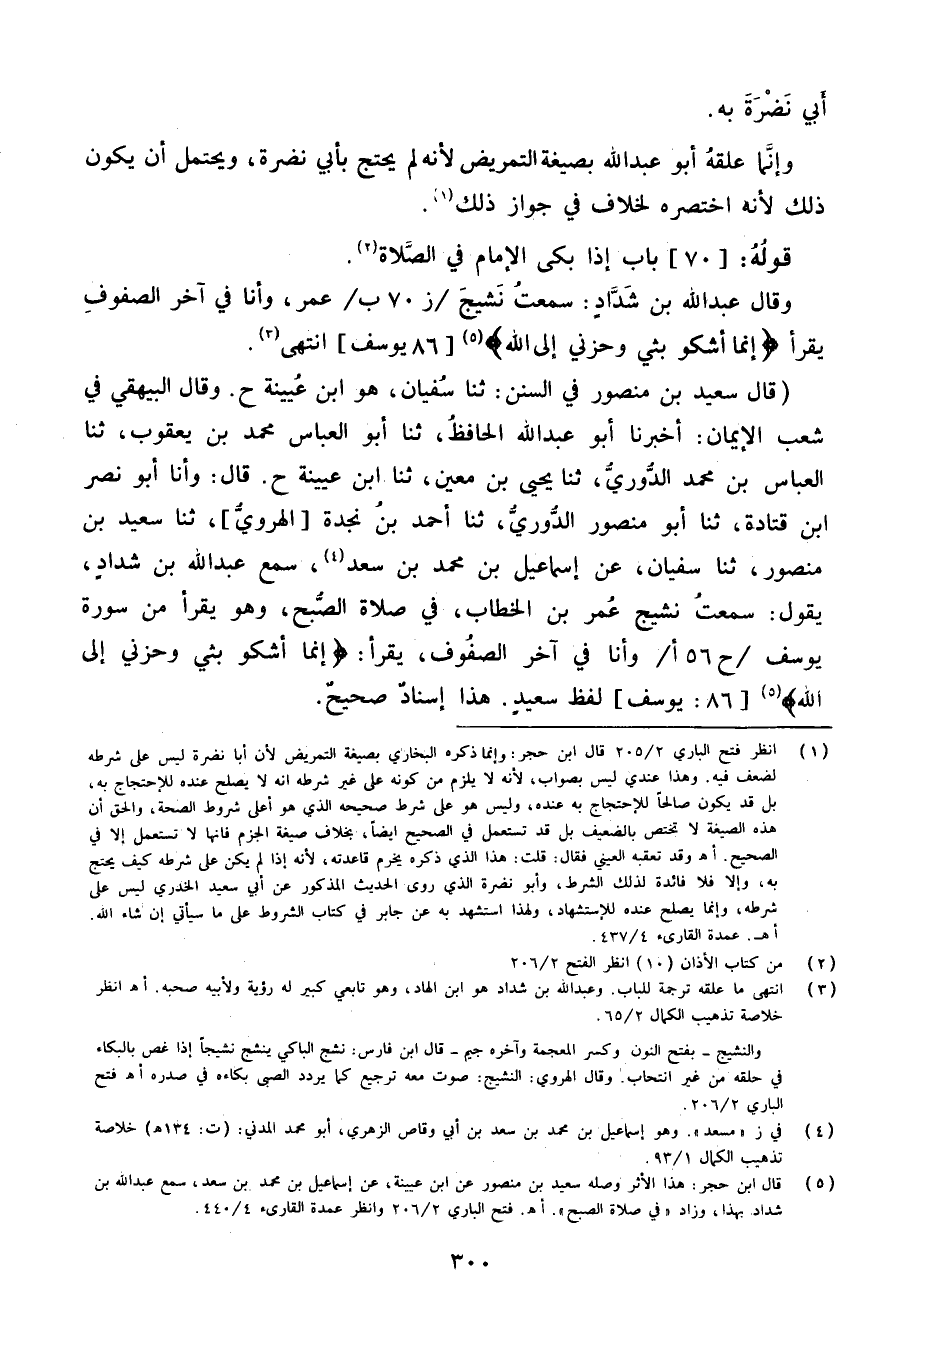 أَبي نَضْرَةَ به.
وإنَّما علقهُ أبو عبدالله بصيغة التمريض لأنه لم يحتج بأبي نضرة، ويحتمل أن يكون
ذلك لأنه اختصره لخلاف في جواز ذلك(١).
قولُهُ: [٧٠] باب إذا بكى الإمام في الصَّلاة(٢).
وقال عبدالله بن شَدَّادٍ: سمعتُ نَشيجَ /ز ٧٠ ب/ عمر، وأنا في آخر الصفوفِ
يقرأ ﴿إنما أشكو بثي وحزني إلى الله﴾(٥) [٨٦ يوسف] انتهى(٣).
(قال سعيد بن منصور في السنن: ثنا سُفيان، هو ابن عُيينة ح. وقال البيهقي في
شعب الإيمان: أخبرنا أبو عبدالله الحافظُ، ثنا أبو العباس محمد بن يعقوب، ثنا
العباس بن محمد الدُّوريُّ، ثنا يحيى بن معين، ثنا ابن عيينة ح. قال: وأنا أبو نصر
ابن قتادة، ثنا أبو منصور الدُّوريُّ، ثنا أحمد بنُ نجدة [الهرويُّ]، ثنا سعيد بن
منصور، ثنا سفيان، عن إسماعيل بن محمد بن سعد(٤)، سمع عبدالله بن شدادٍ،
يقول: سمعتُ نشيج عُمر بن الخطاب، في صلاة الصُّبح، وهو يقرأ من سورة
يوسف /ح ٥٦ أ/ وأنا في آخر الصفُوف، يقرأ: ﴿إنما أشكو بثي وحزني إلى
الله﴾(٥) [٨٦: يوسف] لفظ سعيدٍ. هذا إسنادٌ صحيحٌ.
(١) انظر فتح الباري ٢٠٥/٢ قال ابن حجر: وإنما ذكره البخاري بصيغة التمريض لأن أبا نضرة ليس على شرطه
لضعف فيه. وهذا عندي ليس بصواب، لأنه لا يلزم من كونه على غير شرطه انه لا يصلح عنده للإحتجاج به،
بل قد يكون صالحاً للإحتجاج به عنده، وليس هو على شرط صحيحه الذي هو أعلى شروط الصحة، والحق أن
هذه الصيغة لا تختص بالضعيف بل قد تستعمل في الصحيح ايضاً، بخلاف صيغة الجزم فانها لا تستعمل إلا في
الصحيح. أ هـ وقد تعقبه العيني فقال: قلت: هذا الذي ذكره يخرم قاعدته، لأنه إذا لم يكن على شرطه كيف يحتج
به، وإلا فلا فائدة لذلك الشرط، وأبو نضرة الذي روى الحديث المذكور عن أبي سعيد الخدري ليس على
شرطه، وإنما يصلح عنده للإستشهاد، ولهذا استشهد به عن جابر في كتاب الشروط على ما سيأتي إن شاء الله.
أ هـ. عمدة القارىء ٤٣٧/٤.
(٢) من كتاب الأذان (١٠) انظر الفتح ٢٠٦/٢
(٣) انتهى ما علقه ترجمة للباب. وعبدالله بن شداد هو ابن الهاد، وهو تابعي كبير له رؤية ولأبيه صحبه. أ هـ انظر
خلاصة تذهيب الكمال ٦٥/٢.
والنشيج ـ بفتح النون وكسر المعجمة وآخره جيم ـ قال ابن فارس: نشج الباكي ينشج نشيجاً إذا غص بالبكاء
في حلقه من غير انتحاب. وقال الهروي: النشيج: صوت معه ترجيع كما يردد الصبي بكاءه في صدره أ هـ فتح
الباري ٢٠٦/٢.
(٤) في ز «مسعد». وهو إسماعيل بن محمد بن سعد بن أبي وقاص الزهري، أبو محمد المدني: (ت: ١٣٤هـ) خلاصة
تذهيب الكمال ٩٣/١.
(٥) قال ابن حجر: هذا الأثر وصله سعيد بن منصور عن ابن عيينة، عن إسماعيل بن محمد بن سعد، سمع عبدالله بن
شداد بهذا، وزاد «في صلاة الصبح». أ هـ. فتح الباري ٢٠٦/٢ وانظر عمدة القارىء ٤٤٠/٤.
٣٠٠